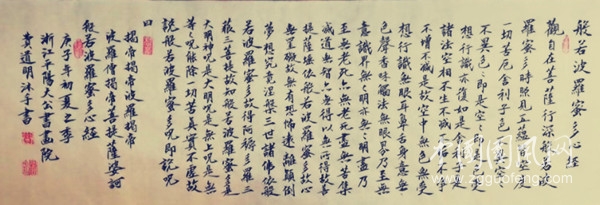 般若波羅蜜多心經
觀自在菩薩行深般若波
羅蜜多時照見五蘊皆空度
一切苦厄舍利子色不異空々
不異色々即是空々即是色受
想行識亦復如是舍利子是
諸法空相不生不滅不垢不淨
不增不減是故空中無色無受
想行識無眼耳鼻舌身意無
色聲香味觸法無眼界乃至無
意識界無無明亦無無明盡乃
至無老死亦無老死盡無苦集
滅道無智亦無得以無所得故菩
提薩埵依般若波羅蜜多故心
無罣礙故無有恐怖遠離顛倒
夢想究竟涅槃三世諸佛依般
若波羅蜜多故得阿耨多羅三
藐三菩提故知般若波羅蜜多是
大明神呪是大明呪是無上呪是無
等々呪能除一切苦真實不虛故
說般若波羅蜜多呪即說呪
曰
揭帝揭帝波羅揭帝
波羅僧揭帝菩提薩婆訶
般若波羅蜜多心經
庚子年初夏之季
浙江平陽大公書畫院
黃道明沐手書
國國風網
www.zgguofeng.com